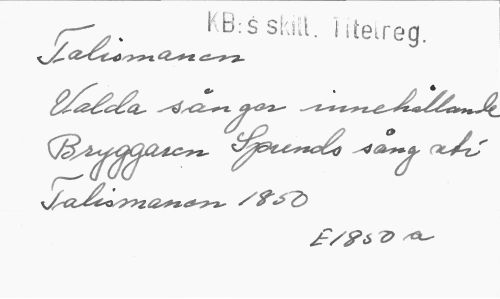 KB:s skill. Titelreg.
Talismanen
Valda sånger innehållande
Bryggaren Spunds sång uti
Talismanen 1850
E1850 a